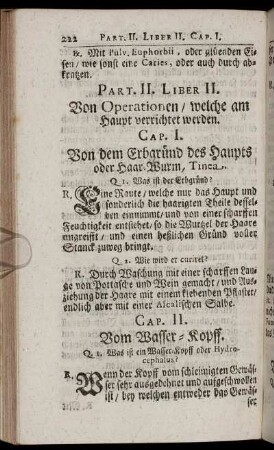 222 PART. II. LIBER II. CAP. I.
&. Mit Pulv. Euphorbii, oder glüenden Ei-
sen / wie sonst eine Caries, oder auch durch ab-
kratzen.
PART. II. LIBER II.
Von Operationen / welche am
Haupt verrichtet werden.
CAP. I.
Von dem Erbgründ des Haupts
oder Haar-Wurm, Tinea.
Q. 1. Was ist der Erbgründ?
R. Eine Raute / welche nur das Haupt und
sonderlich die haarigten Theile dessel-
ben einnimmt / und von einer scharffen
Feuchtigkeit entstehet / so die Wurtzel der Haare
angreifft / und einen heßlichen Gründ voller
Stanck zuweg bringt.
Q. 2. Wie wird er curiret?
R. Durch Waschung mit einer scharffen Lau-
ge von Pottasche und Wein gemacht / und Aus-
ziehung der Haare mit einem klebenden Pflaster /
endlich aber mit einer Alcalischen Salbe.
CAP. II.
Vom Wasser-Kopff.
Q. 1. Was ist ein Wasser-Kopff oder Hydro-
cephalus?
R. Wenn der Kopff vom schleimigten Gewäs-
ser sehr ausgedehnet und aufgeschwollen
ist / bey welchen entweder das Gewäs-
ser